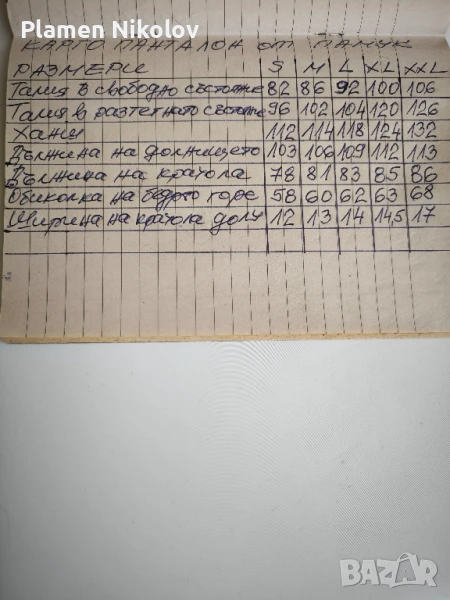 Plamen Nikolov
КАРГО ПАНТАЛОН ОТ ПАМУК
РАЗМЕРИ S M L XL XXL
Талия в свободно състояние 82 86 92 100 106
Талия в разтегнато състояние 96 102 104 120 126
Ханш 112 114 118 124 132
Дължина на долнището 103 106 109 112 113
Дължина на крачола 78 81 83 85 86
Обиколка на бедро горе 58 60 62 63 68
Ширина на крачола долу 12 13 14 14,5 17
BAZAR